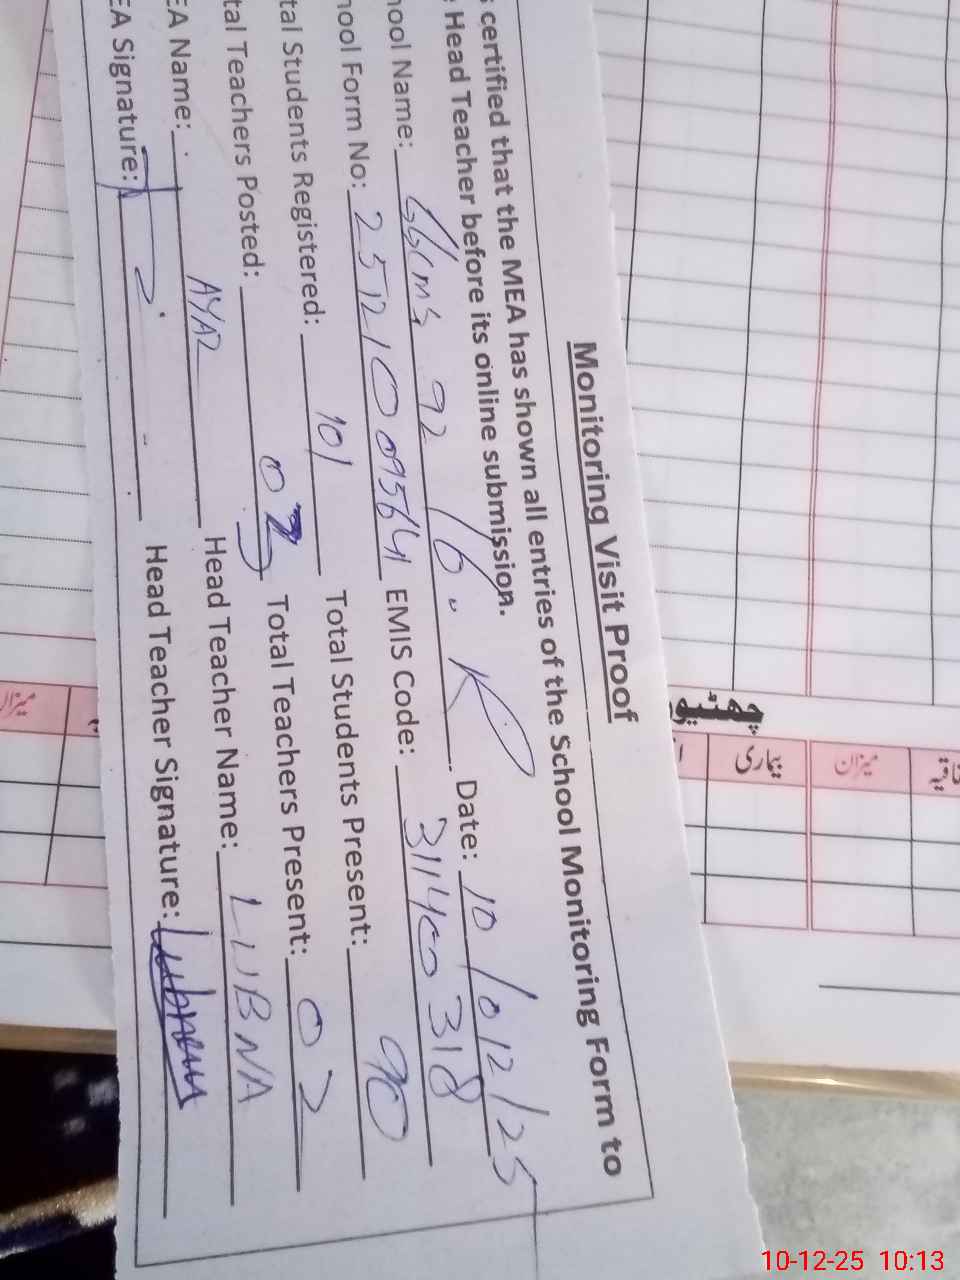 Monitoring Visit Proof
s certified that the MEA has shown all entries of the School Monitoring Form to
Head Teacher before its online submission.
hool Name: 92 Date: 10/012/25
hool Form No: EMIS Code: 31140318
tal Students Registered: 101 Total Students Present: 90
tal Teachers Posted: Total Teachers Present: 02
EA Name: AYAZ Head Teacher Name: LUBNA
EA Signature: Head Teacher Signature: Lubna
چھٹیو
بیماری میزان
میزان
10-12-25 10:13